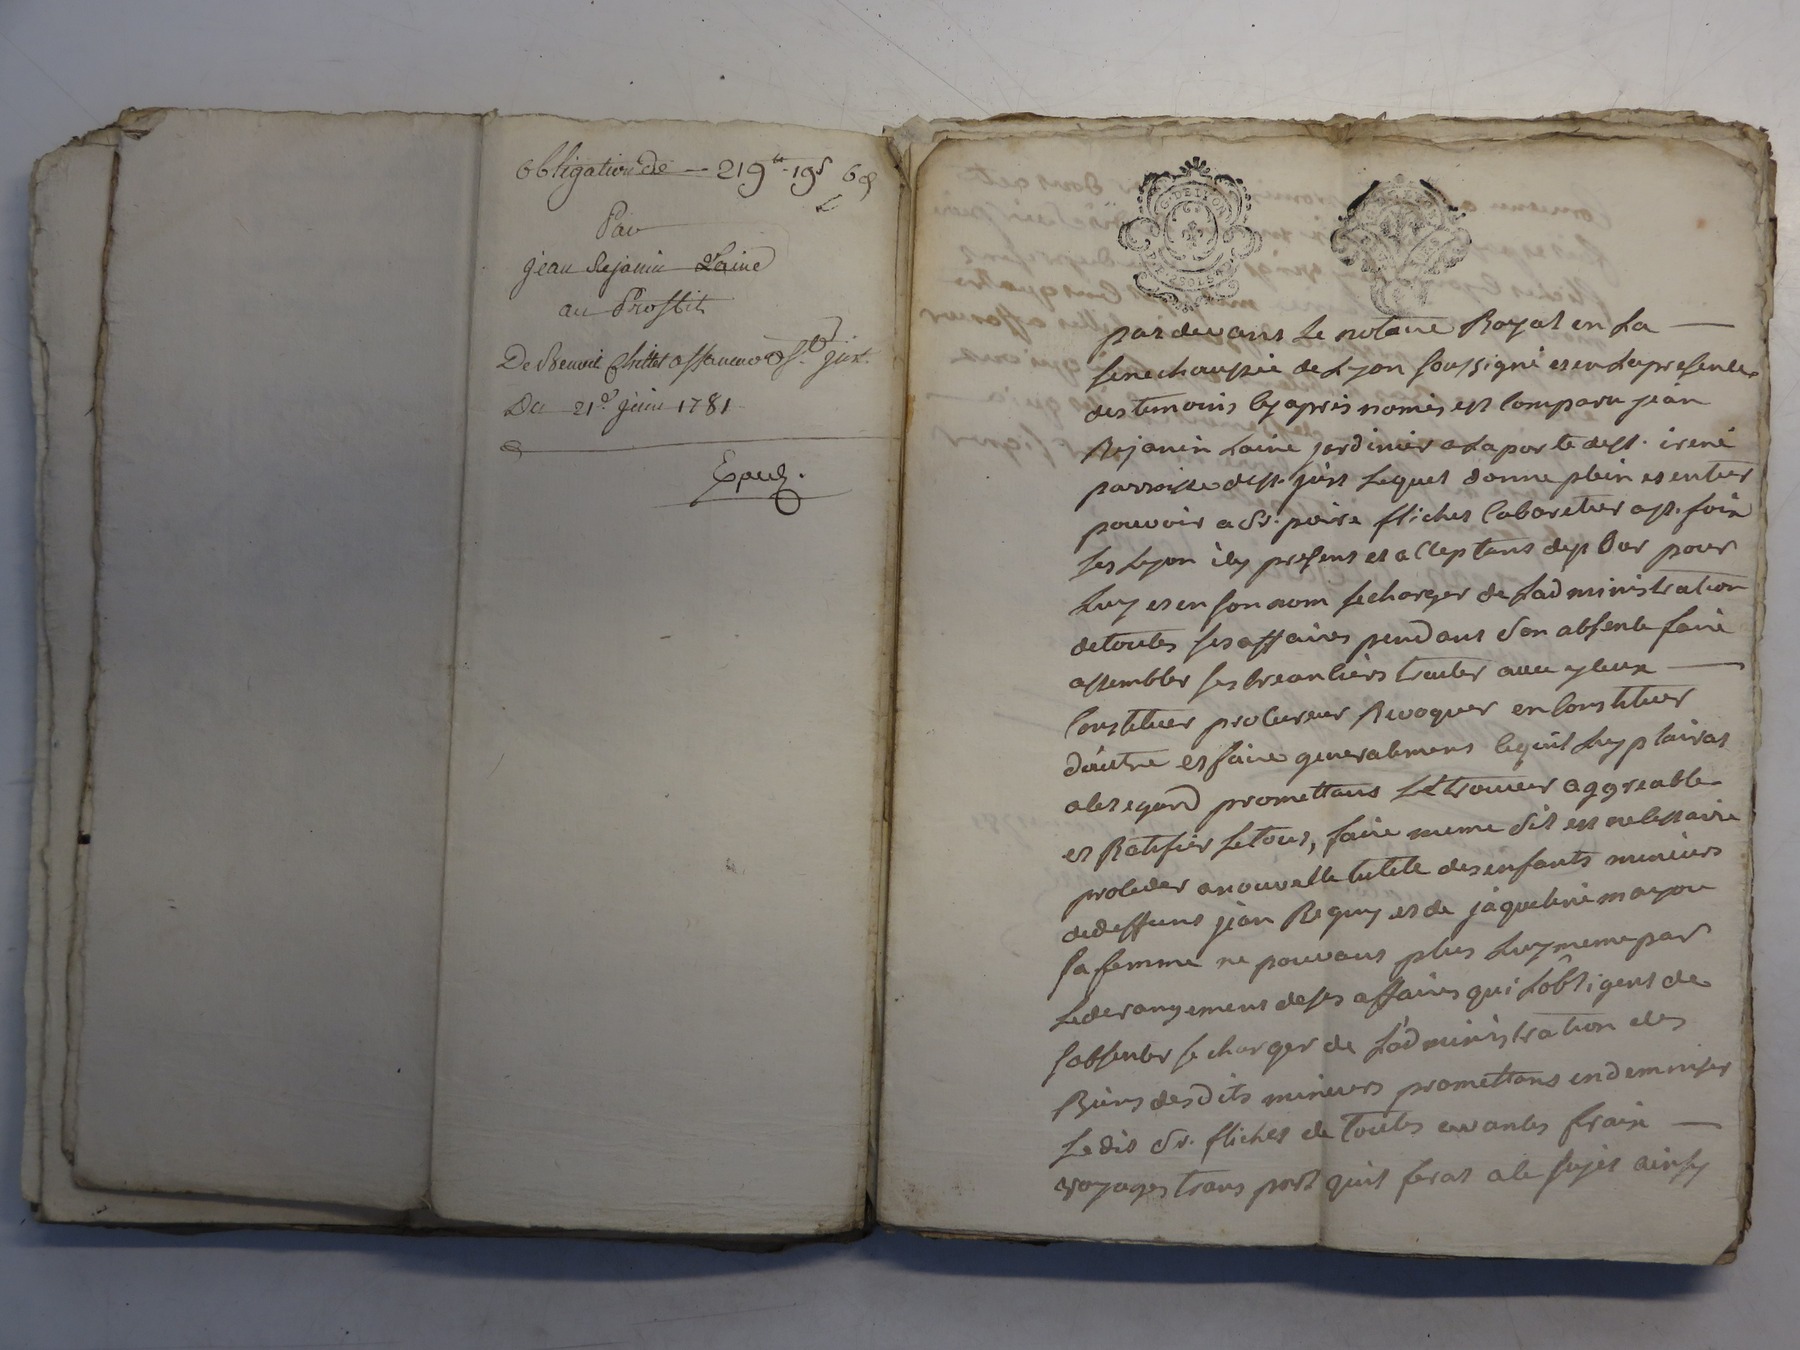 obligation de — 219ᵗᵗ 19ˢ 6ᵈ
Par
jean Rejanin Lainé
au Proffit
De Benoit Chillet affaneur à Sᵗ just
Du 21ᵉ juin 1781
Exped.
G. DE LYON
par devant Le notaire Royal en La —
senechaussée de Lyon soussigné et en La presence
des temoins cy apres només est comparu jean
Rejanin Lainé jardinier a La porte de st. irené
parroisse de st. just Lequel donne plein et entier
pouvoir a Sr. poire flichet cabaretier a st. foix
Les Lyon icy present et acceptant de st Bar pour
Luy et en son nom se charger de L'administration
de toutes ses affaires pendant son absence faire
assembler ses creanciers traiter avec yceux —
Constituer procureur Revoquer en Constituer
d'autre et faire generalement ce quil Luy plairat
a cet egard promettant Le trouver aggreable
et Ratifier Le tout, faire meme s'il est necessaire
proceder a nouvelle tutelle des enfants mineurs
de deffunt jean Reguy et de jaqueline mayou
sa femme ne pouvant plus Luy meme par
Le derangement de ses affaires qui L'obligent de
s'absenter se charger de L'administration des
Biens des dits mineurs promettant indemniser
Le dit Sr. flichet de toutes avances fraix —
voyages transport quil ferat a ce sujet ainsy